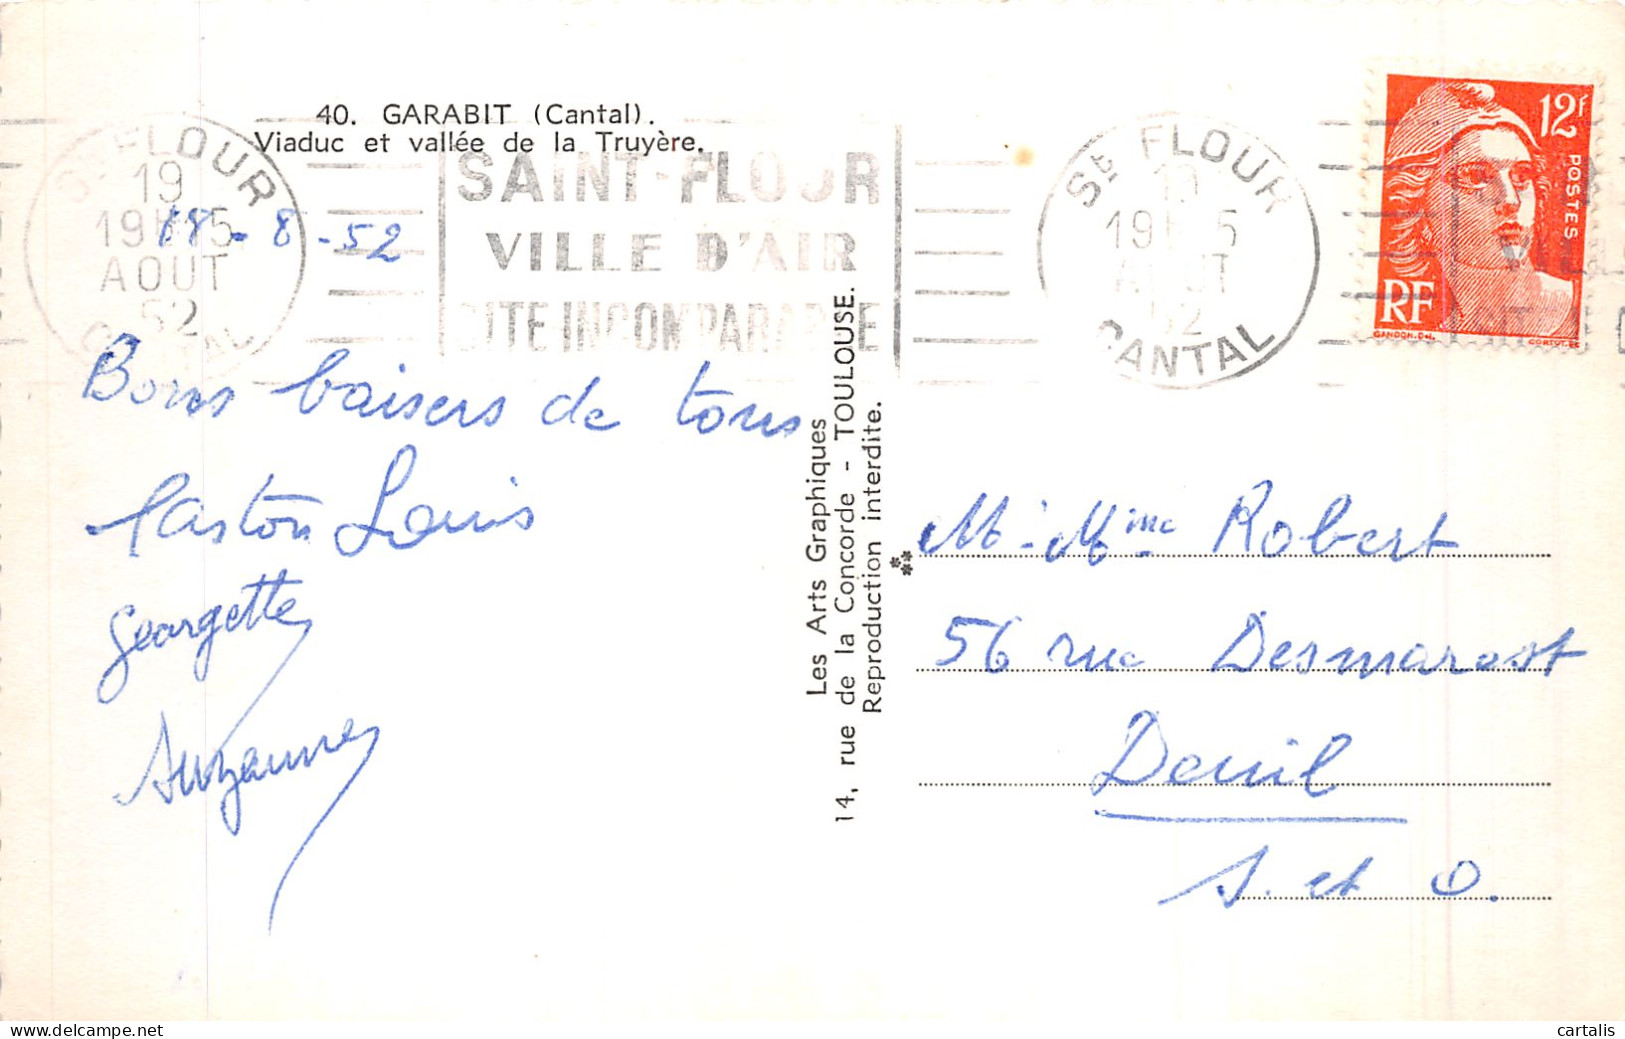 40. GARABIT (Cantal).
Viaduc et vallée de la Truyère.
St FLOUR
19
19H 5
AOUT
52
CANTAL
18-8-52
SAINT-FLOUR
VILLE D'AIR
SITE INCOMPARABLE
St FLOUR
19
19H 5
AOUT
52
CANTAL
12F
POSTES
RF
GANDON. DEL.
CORTOT. SC
Bons baisers de tous
Gaston Louis
Georgette
Suzanne
Les Arts Graphiques
14, rue de la Concorde - TOULOUSE.
Reproduction interdite.
M. Mme Robert
56 rue Desmarest
Deuil
S. et O.
cartalis
delcampe.net